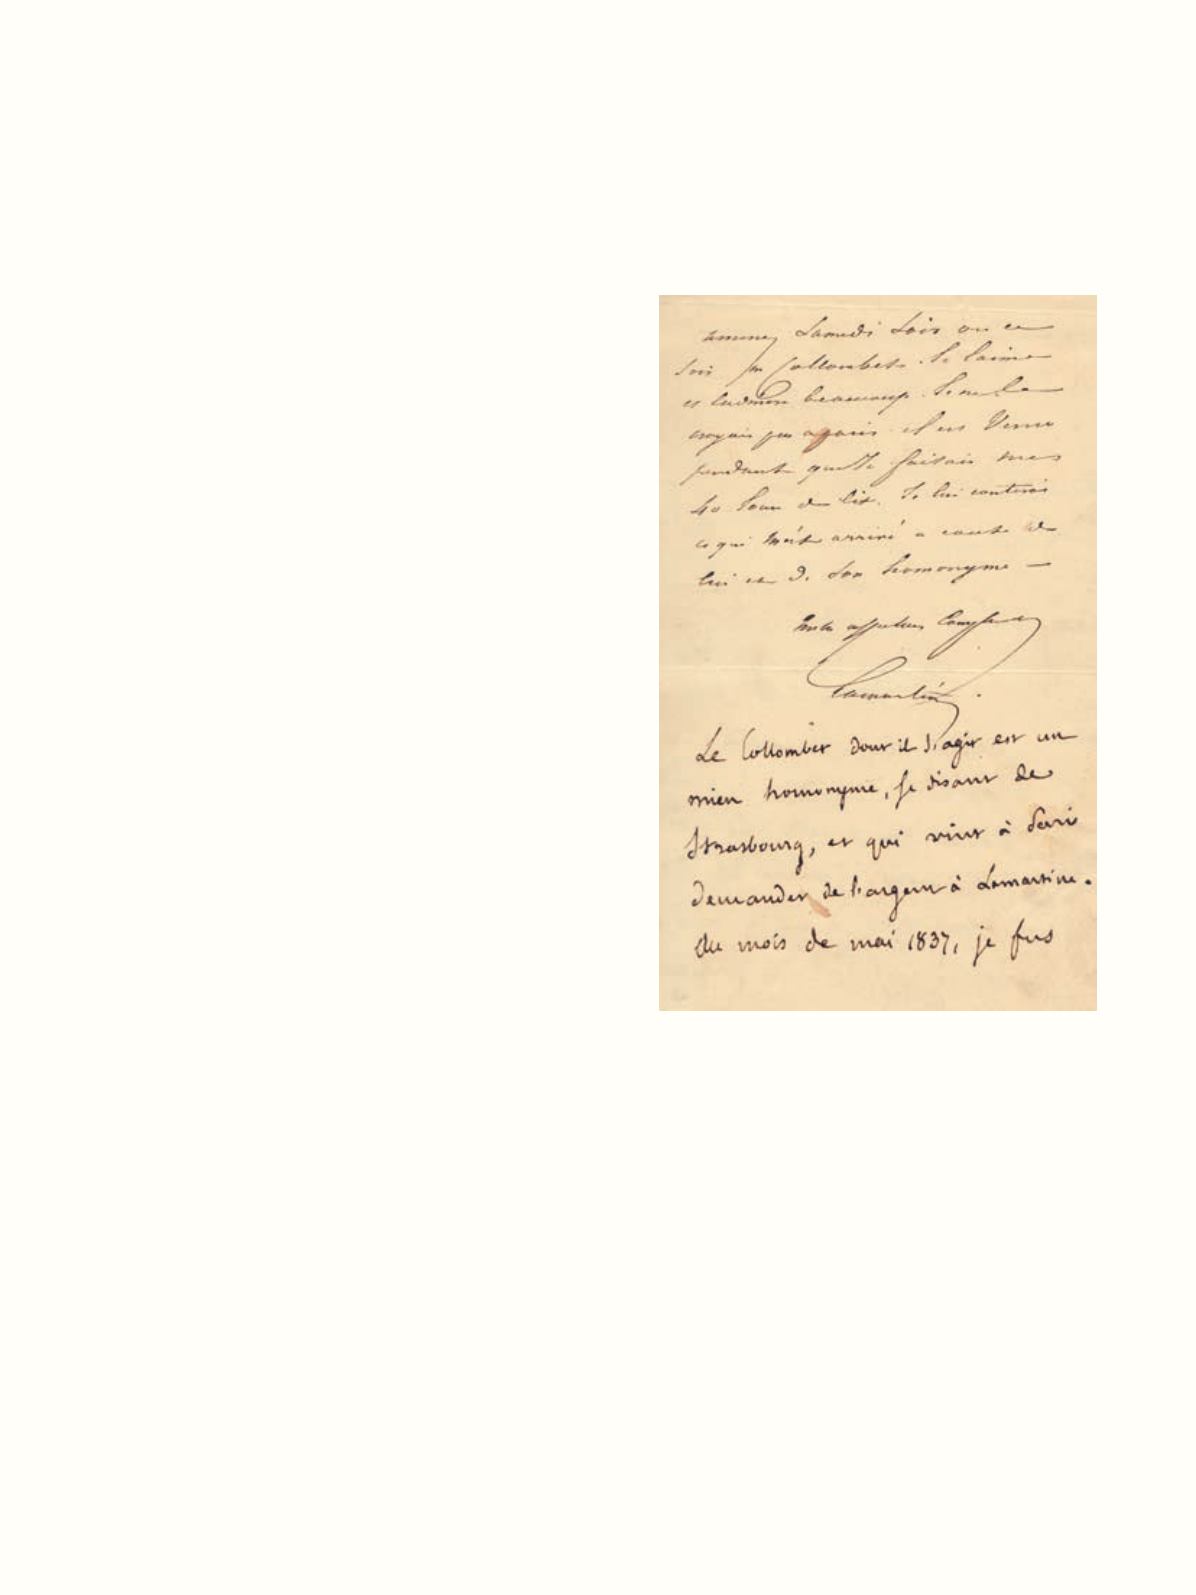 amenez Samedi Soir ou ce
Soir Mr Collombet. Je l'aime
et l'admire beaucoup. Je ne le
croyais pas à Paris. il est Venu
pendant que Je faisais mes
40 Jours de lit. Je lui conterai
ce qui m'est arrivé a cause de
lui et de Son homonyme —
Lamartine
Le Collombet dont il s'agit est un
mien homonyme, se disant de
Strasbourg, et qui vint à Paris
demander de l'argent à Lamartine.
Au mois de mai 1837, je fus